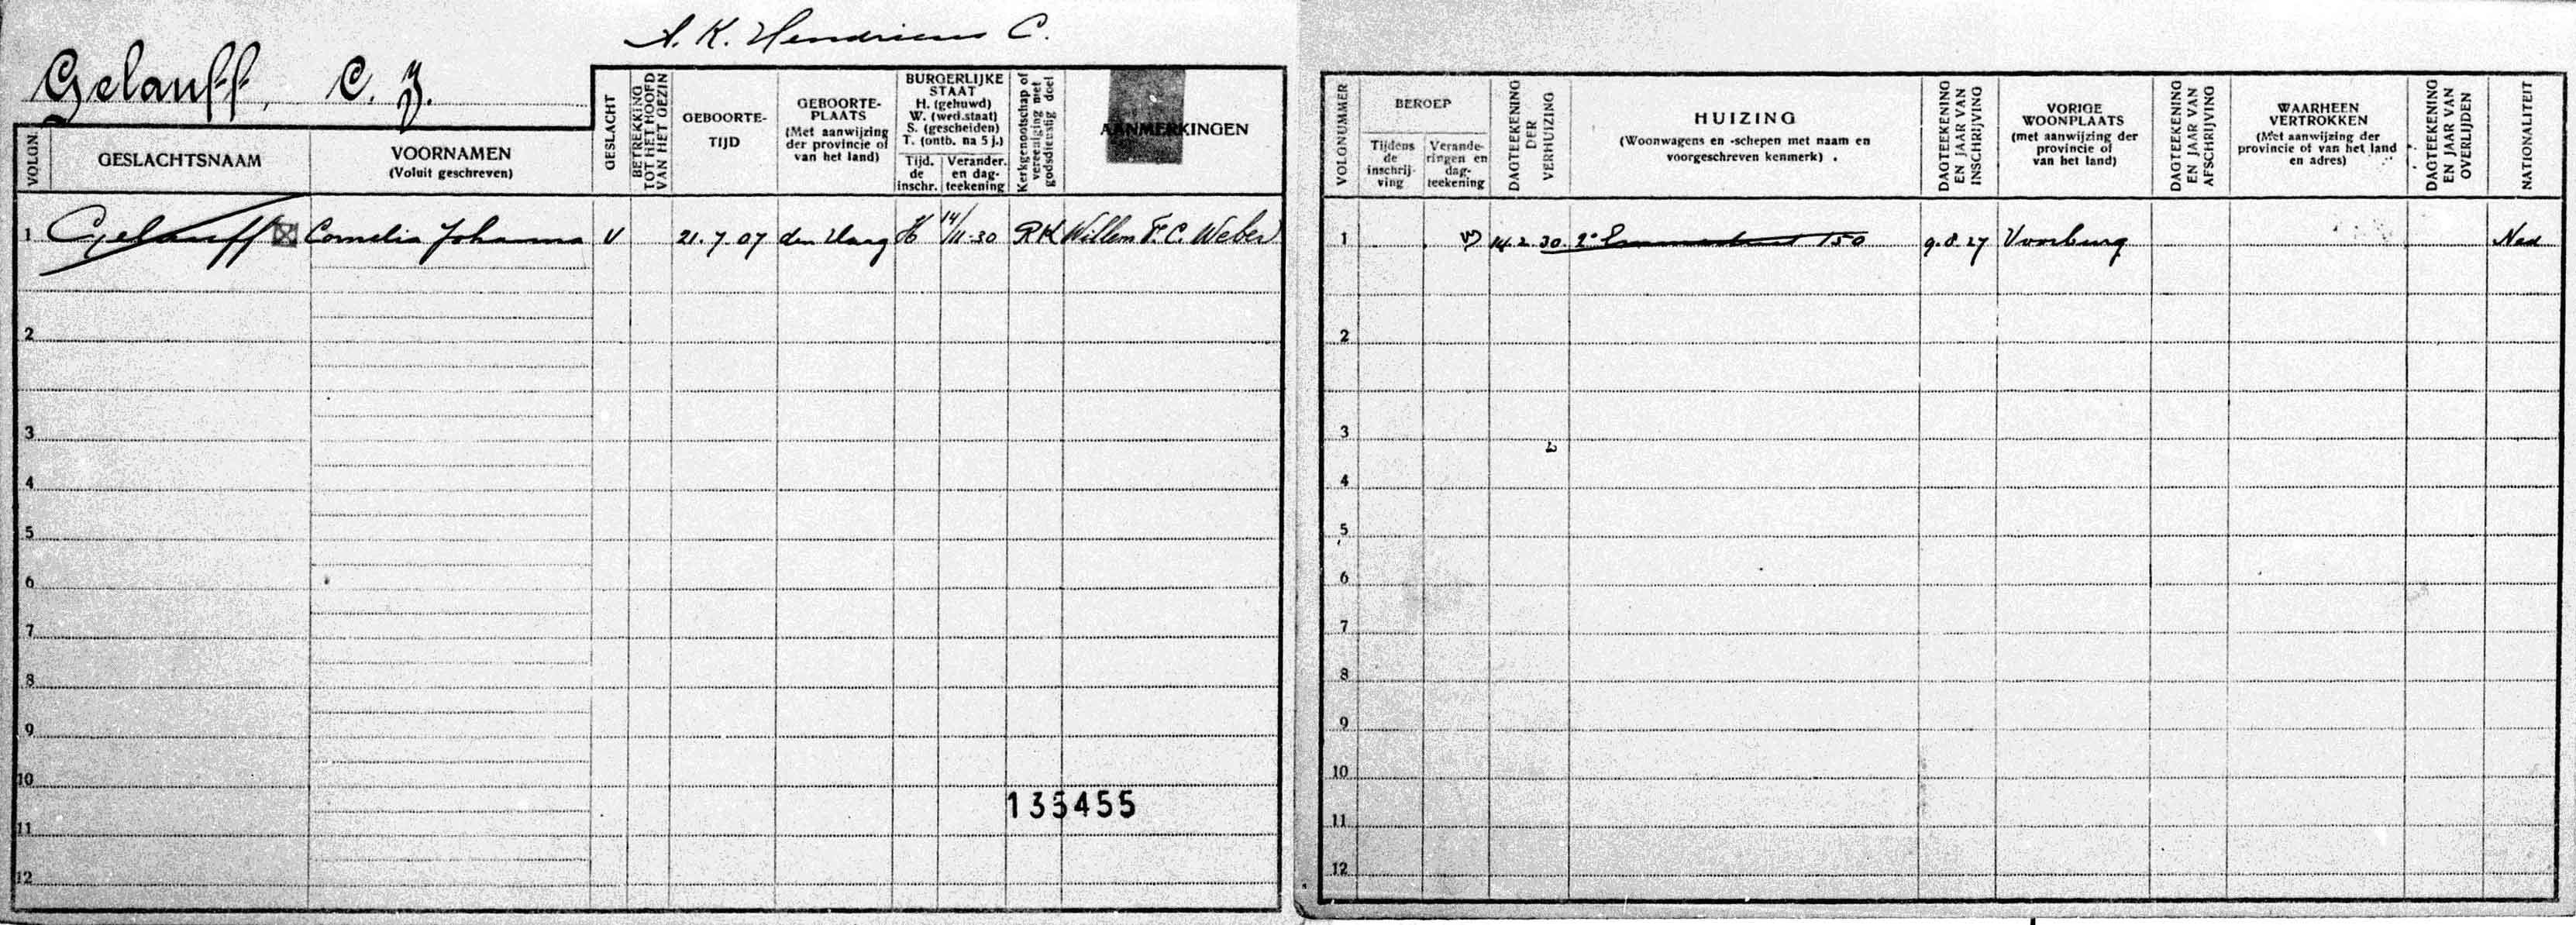 A. K. Hendricus C.
Gelauff, C. J.
VOLGN.
GESLACHTSNAAM
VOORNAMEN
(Voluit geschreven)
GESLACHT
BETREKKING
TOT HET HOOFD
VAN HET GEZIN
GEBOORTE-
TIJD
GEBOORTE-
PLAATS
(Met aanwijzing
der provincie of
van het land)
BURGERLIJKE
STAAT
H. (gehuwd)
W. (wed.staat)
S. (gescheiden)
T. (ontb. na 5 j.)
Tijd.
de
inschr.
Verander.
en dag-
teekening
Kerkgenootschap of
vereeniging met
godsdienstig doel
AANMERKINGEN
1 Gelauff Cornelia Johanna V 21.7 07 den Haag H 14/11-30 RK Willem F. C. Weber
2
3
4
5
6
7
8
9
10
135455
11
12
VOLGNUMMER
BEROEP
Tijdens
de
inschrij-
ving
Verande-
ringen en
dag-
teekening
DAGTEEKENING
DER
VERHUIZING
HUIZING
(Woonwagens en -schepen met naam en
voorgeschreven kenmerk)
DAGTEEKENING
EN JAAR VAN
INSCHRIJVING
VORIGE
WOONPLAATS
(met aanwijzing der
provincie of
van het land)
DAGTEEKENING
EN JAAR VAN
AFSCHRIJVING
WAARHEEN
VERTROKKEN
(Met aanwijzing der
provincie of van het land
en adres)
DAGTEEKENING
EN JAAR VAN
OVERLIJDEN
NATIONALITEIT
1 14.2.30. 2e 150 9.8.27 Voorburg Ned
2
3
4
5
6
7
8
9
10
11
12